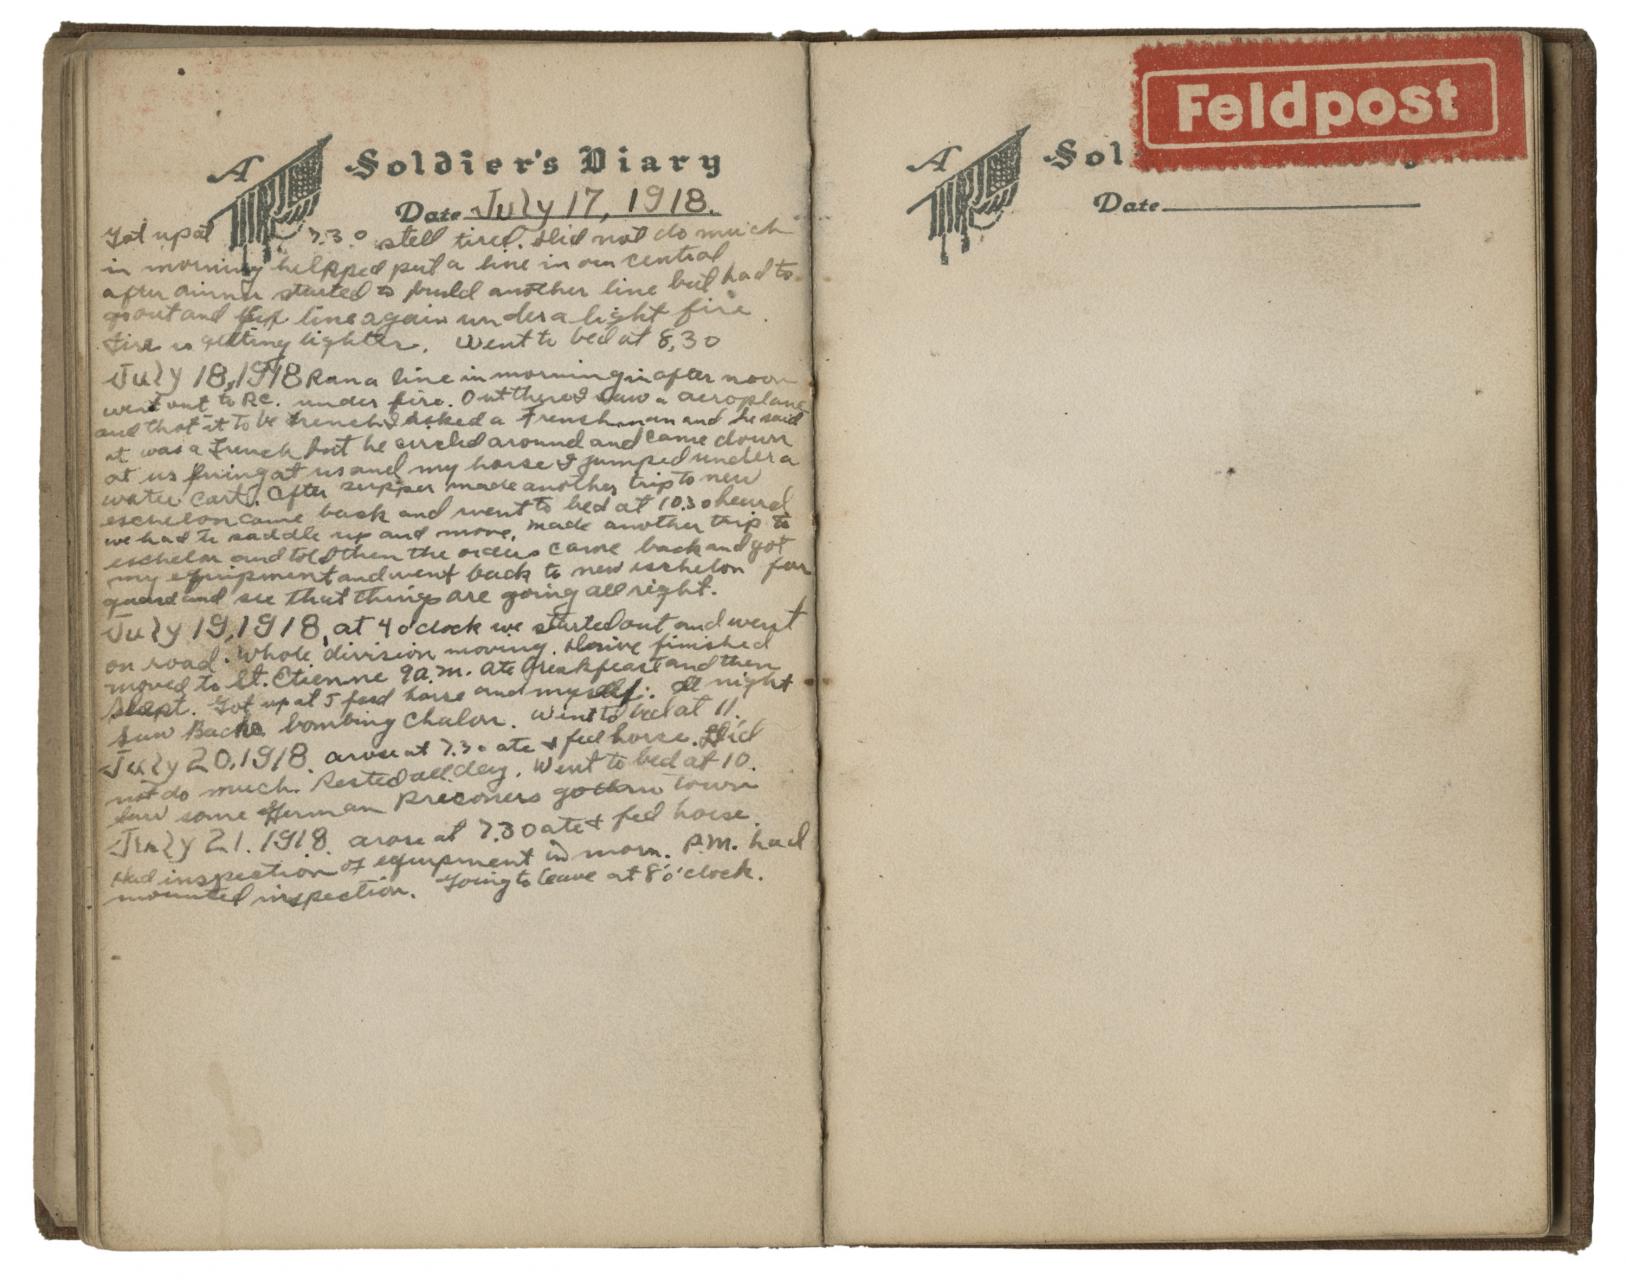 A Soldier's Diary
Date July 17, 1918.
Got up at 7.30 still tired. Did not do much
in morning helpped put a line in our central
after dinner started to build another line but had to
go out and fix line again under a light fire.
Fire is getting lighter. Went to bed at 8,30
July 18, 1918 Ran a line in morning in after noon
went out to P.C. under fire. Out there I saw a aeroplane
and that it to be French I asked a Frenshman and he said
it was a French but he circled around and came down
at us firing at us and my horse & I jumped under a
water cart. After supper made another trip to new
eschelon came back and went to bed at 10.30 heard
we had to saddle up and move, made another trip to
eschelon and told them the orders came back and got
my equipment and went back to new eschelon for
guard and see that things are going all right.
July 19, 1918, at 4 o'clock we started out and went
on road. Whole division moving. Drive finished
moved to St. Etienne 9 a.m. ate breakfeast and then
slept. Got up at 5 feed horse and myself. At night
saw Boche bombing Chalon. Went to bed at 11.
July 20, 1918. arose at 7.30 ate & fed horse. Did
not do much. Rested all day. Went to bed at 10.
Saw some German Prisoners go town
July 21. 1918. arose at 7.30 ate & fed horse.
Had inspection of equipment in morn. P.M. had
mounted inspection. Going to leave at 8 o'clock.
Feldpost
A Sol
Date